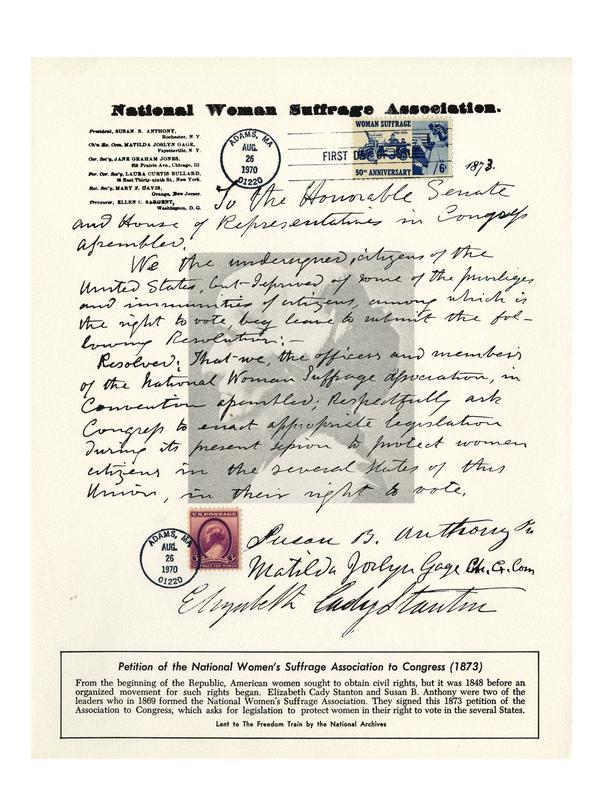 National Woman Suffrage Association.
President, SUSAN B. ANTHONY,
Rochester, N. Y.
Ch'n Ex. Com. MATILDA JOSLYN GAGE,
Fayetteville, N. Y.
Cor. Sec'y, JANE GRAHAM JONES,
Prairie Ave., Chicago, Ill.
For. Cor. Sec'y, LAURA CURTIS BULLARD,
East Thirty-ninth St., New York.
Rec. Sec'y, MARY F. DAVIS,
Orange, New Jersey.
Treasurer, ELLEN C. SARGENT,
Washington, D. C.
ADAMS, MA
AUG.
26
1970
01220
WOMAN SUFFRAGE
FIRST DAY OF ISSUE
50th ANNIVERSARY
6¢
1873.
To the Honorable Senate
and House of Representatives in Congress
assembled:
We the undersigned, citizens of the
United States, but deprived of some of the privileges
and immunities of citizens, among which is
the right to vote, beg leave to submit the fol-
lowing Resolution:—
Resolved; That we, the officers and members
of the National Woman Suffrage Association, in
Convention assembled; Respectfully ask
Congress to enact appropriate legislation
during its present session to protect women
citizens in the several States of this
Union, in their right to vote.
U.S. POSTAGE
3¢ 3¢
SUFFRAGE FOR WOMEN
ADAMS, MA
AUG.
26
1970
01220
Susan B. Anthony
Matilda Joslyn Gage Ch. Ex. Com
Elizabeth Cady Stanton
Petition of the National Women's Suffrage Association to Congress (1873)
From the beginning of the Republic, American women sought to obtain civil rights, but it was 1848 before an
organized movement for such rights began. Elizabeth Cady Stanton and Susan B. Anthony were two of the
leaders who in 1869 formed the National Women's Suffrage Association. They signed this 1873 petition of the
Association to Congress, which asks for legislation to protect women in their right to vote in the several States.
Lent to The Freedom Train by the National Archives